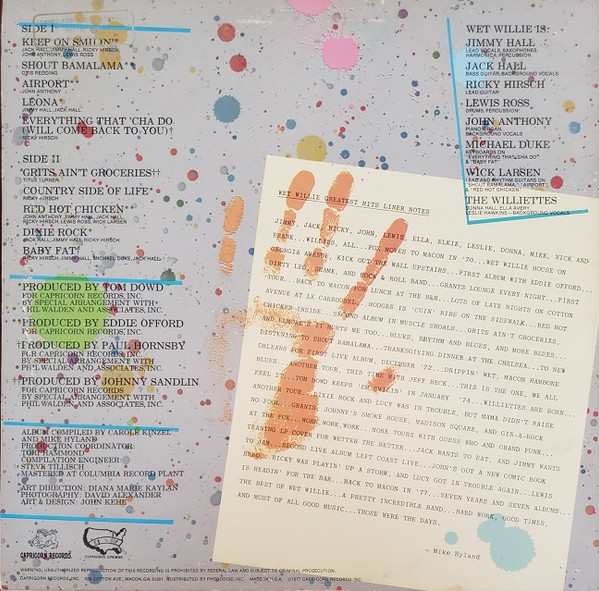 SIDE I
KEEP ON SMILIN'**
JACK HALL, JIMMY HALL, RICKY HIRSCH,
JOHN ANTHONY, LEWIS ROSS
SHOUT BAMALAMA*
OTIS REDDING
AIRPORT*
JOHN ANTHONY
LEONA*
JIMMY HALL, JACK HALL
EVERYTHING THAT 'CHA DO
(WILL COME BACK TO YOU)†
RICKY HIRSCH
SIDE II
GRITS AIN'T GROCERIES††
TITUS TURNER
COUNTRY SIDE OF LIFE*
RICKY HIRSCH
RED HOT CHICKEN*
JOHN ANTHONY, JIMMY HALL, JACK HALL,
RICKY HIRSCH, LEWIS ROSS, WICK LARSEN
DIXIE ROCK*
JACK HALL, JIMMY HALL, RICKY HIRSCH
BABY FAT*
RICKY HIRSCH, JIMMY HALL, MICHAEL DUKE, JACK HALL
*PRODUCED BY TOM DOWD
FOR CAPRICORN RECORDS, INC.
BY SPECIAL ARRANGEMENT WITH
PHIL WALDEN AND ASSOCIATES, INC.
PRODUCED BY EDDIE OFFORD
FOR CAPRICORN RECORDS, INC.
†PRODUCED BY PAUL HORNSBY
FOR CAPRICORN RECORDS, INC.
BY SPECIAL ARRANGEMENT WITH
PHIL WALDEN AND ASSOCIATES, INC.
††PRODUCED BY JOHNNY SANDLIN
FOR CAPRICORN RECORDS
BY SPECIAL ARRANGEMENT WITH
PHIL WALDEN AND ASSOCIATES, INC.
ALBUM COMPILED BY CAROLE KINZEL
AND MIKE HYLAND
PRODUCTION COORDINATOR:
TORI HAMMOND
COMPILATION ENGINEER
STEVE TILLISCH
MASTERED AT COLUMBIA RECORD PLANT
ART DIRECTION: DIANA MARIE KAYLAN
PHOTOGRAPHY: DAVID ALEXANDER
ART & DESIGN: JOHN KEHE
CAPRICORN RECORDS
WARNING: UNAUTHORIZED REPRODUCTION OF THIS RECORDING IS PROHIBITED BY FEDERAL LAW AND SUBJECT TO CRIMINAL PROSECUTION.
CAPRICORN RECORDS, INC. 535 COTTON AVE., MACON, GA 31201 DISTRIBUTED BY PHONODISC, INC. MADE IN U.S.A. 1977 CAPRICORN RECORDS, INC.
WET WILLIE IS:
JIMMY HALL
LEAD VOCALS, SAXOPHONES,
HARMONICA, PERCUSSION
JACK HALL
BASS GUITAR, BACKGROUND VOCALS
RICKY HIRSCH
LEAD GUITAR
LEWIS ROSS
DRUMS, PERCUSSION
JOHN ANTHONY
PIANO, ORGAN,
BACKGROUND VOCALS
MICHAEL DUKE
KEYBOARDS ON
"EVERYTHING THAT 'CHA DO"
& "BABY FAT"
WICK LARSEN
LEAD AND RHYTHM GUITARS ON
"SHOUT BAMALAMA," "AIRPORT,"
& "RED HOT CHICKEN"
THE WILLIETTES
DONNA HALL, ELLA AVERY,
LESLIE HAWKINS—BACKGROUND VOCALS
WET WILLIE GREATEST HITS LINER NOTES
JIMMY, JACK, RICKY, JOHN, LEWIS, ELLA, ELKIE, LESLIE, DONNA, MIKE, WICK AND
FRANK...WILLIES, ALL...FOX MOVES TO MACON IN '70...WET WILLIE HOUSE ON
GEORGIA AVENUE, KICK OUT THE WALL UPSTAIRS...FIRST ALBUM WITH EDDIE OFFORD...
DIRTY LEG, SHAME, AND ROCK & ROLL BAND...GRANTS LOUNGE EVERY NIGHT...FIRST
TOUR...BACK TO MACON FOR LUNCH AT THE H&H...LOTS OF LATE NIGHTS ON COTTON
AVENUE AT LE CARROUSEL...HODGES IS 'CUIN' RIBS ON THE SIDEWALK...RED HOT
CHICKEN BRIDE...NEW ALBUM IN MUSCLE SHOALS...GRITS AIN'T GROCERIES,
AND ELMORE'S IT HURTS ME TOO...BLUES, RHYTHM AND BLUES, AND MORE BLUES...
LISTENING TO SHOUT BAMALAMA...THANKSGIVING DINNER AT THE CHELSEA...TO NEW
ORLEANS FOR FIRST LIVE ALBUM, DECEMBER '72...DRIPPIN' WET, MACON HAMBONE
BLUES, ANOTHER TOUR, THIS TIME JEFF BECK...THIS IS THE ONE, WE ALL
FEEL IT...TOM DOWD KEEPS 'EM SMILIN' IN JANUARY '74...WILLIETTES ARE BORN...
ANOTHER TOUR...DIXIE ROCK AND LUCY WAS IN TROUBLE, BUT MAMA DIDN'T RAISE
NO FOOLS...GRANTS, JOHNNY'S SMOKE HOUSE, MADISON SQUARE, AND GIN-A-ROCK
AT THE FOX...WORK, WORK, WORK...MORE TOURS WITH GUESS WHO AND GRAND FUNK...
LEANING LP COVER FOR WETTER THE BETTER...JACK WANTS TO EAT, AND JIMMY WANTS
TO JAM...SECOND LIVE ALBUM LEFT COAST LIVE...JOHN'S GOT A NEW COMIC BOOK
RICKY WAS PLAYIN' UP A STORM, AND LUCY GOT IN TROUBLE AGAIN...LEWIS
IS HEADIN' FOR THE BAR...BACK TO MACON IN '77...SEVEN YEARS AND SEVEN ALBUMS...
THE BEST OF WET WILLIE...A PRETTY INCREDIBLE BAND...HARD WORK, GOOD TIMES,
AND MOST OF ALL GOOD MUSIC...THOSE WERE THE DAYS.
- Mike Hyland